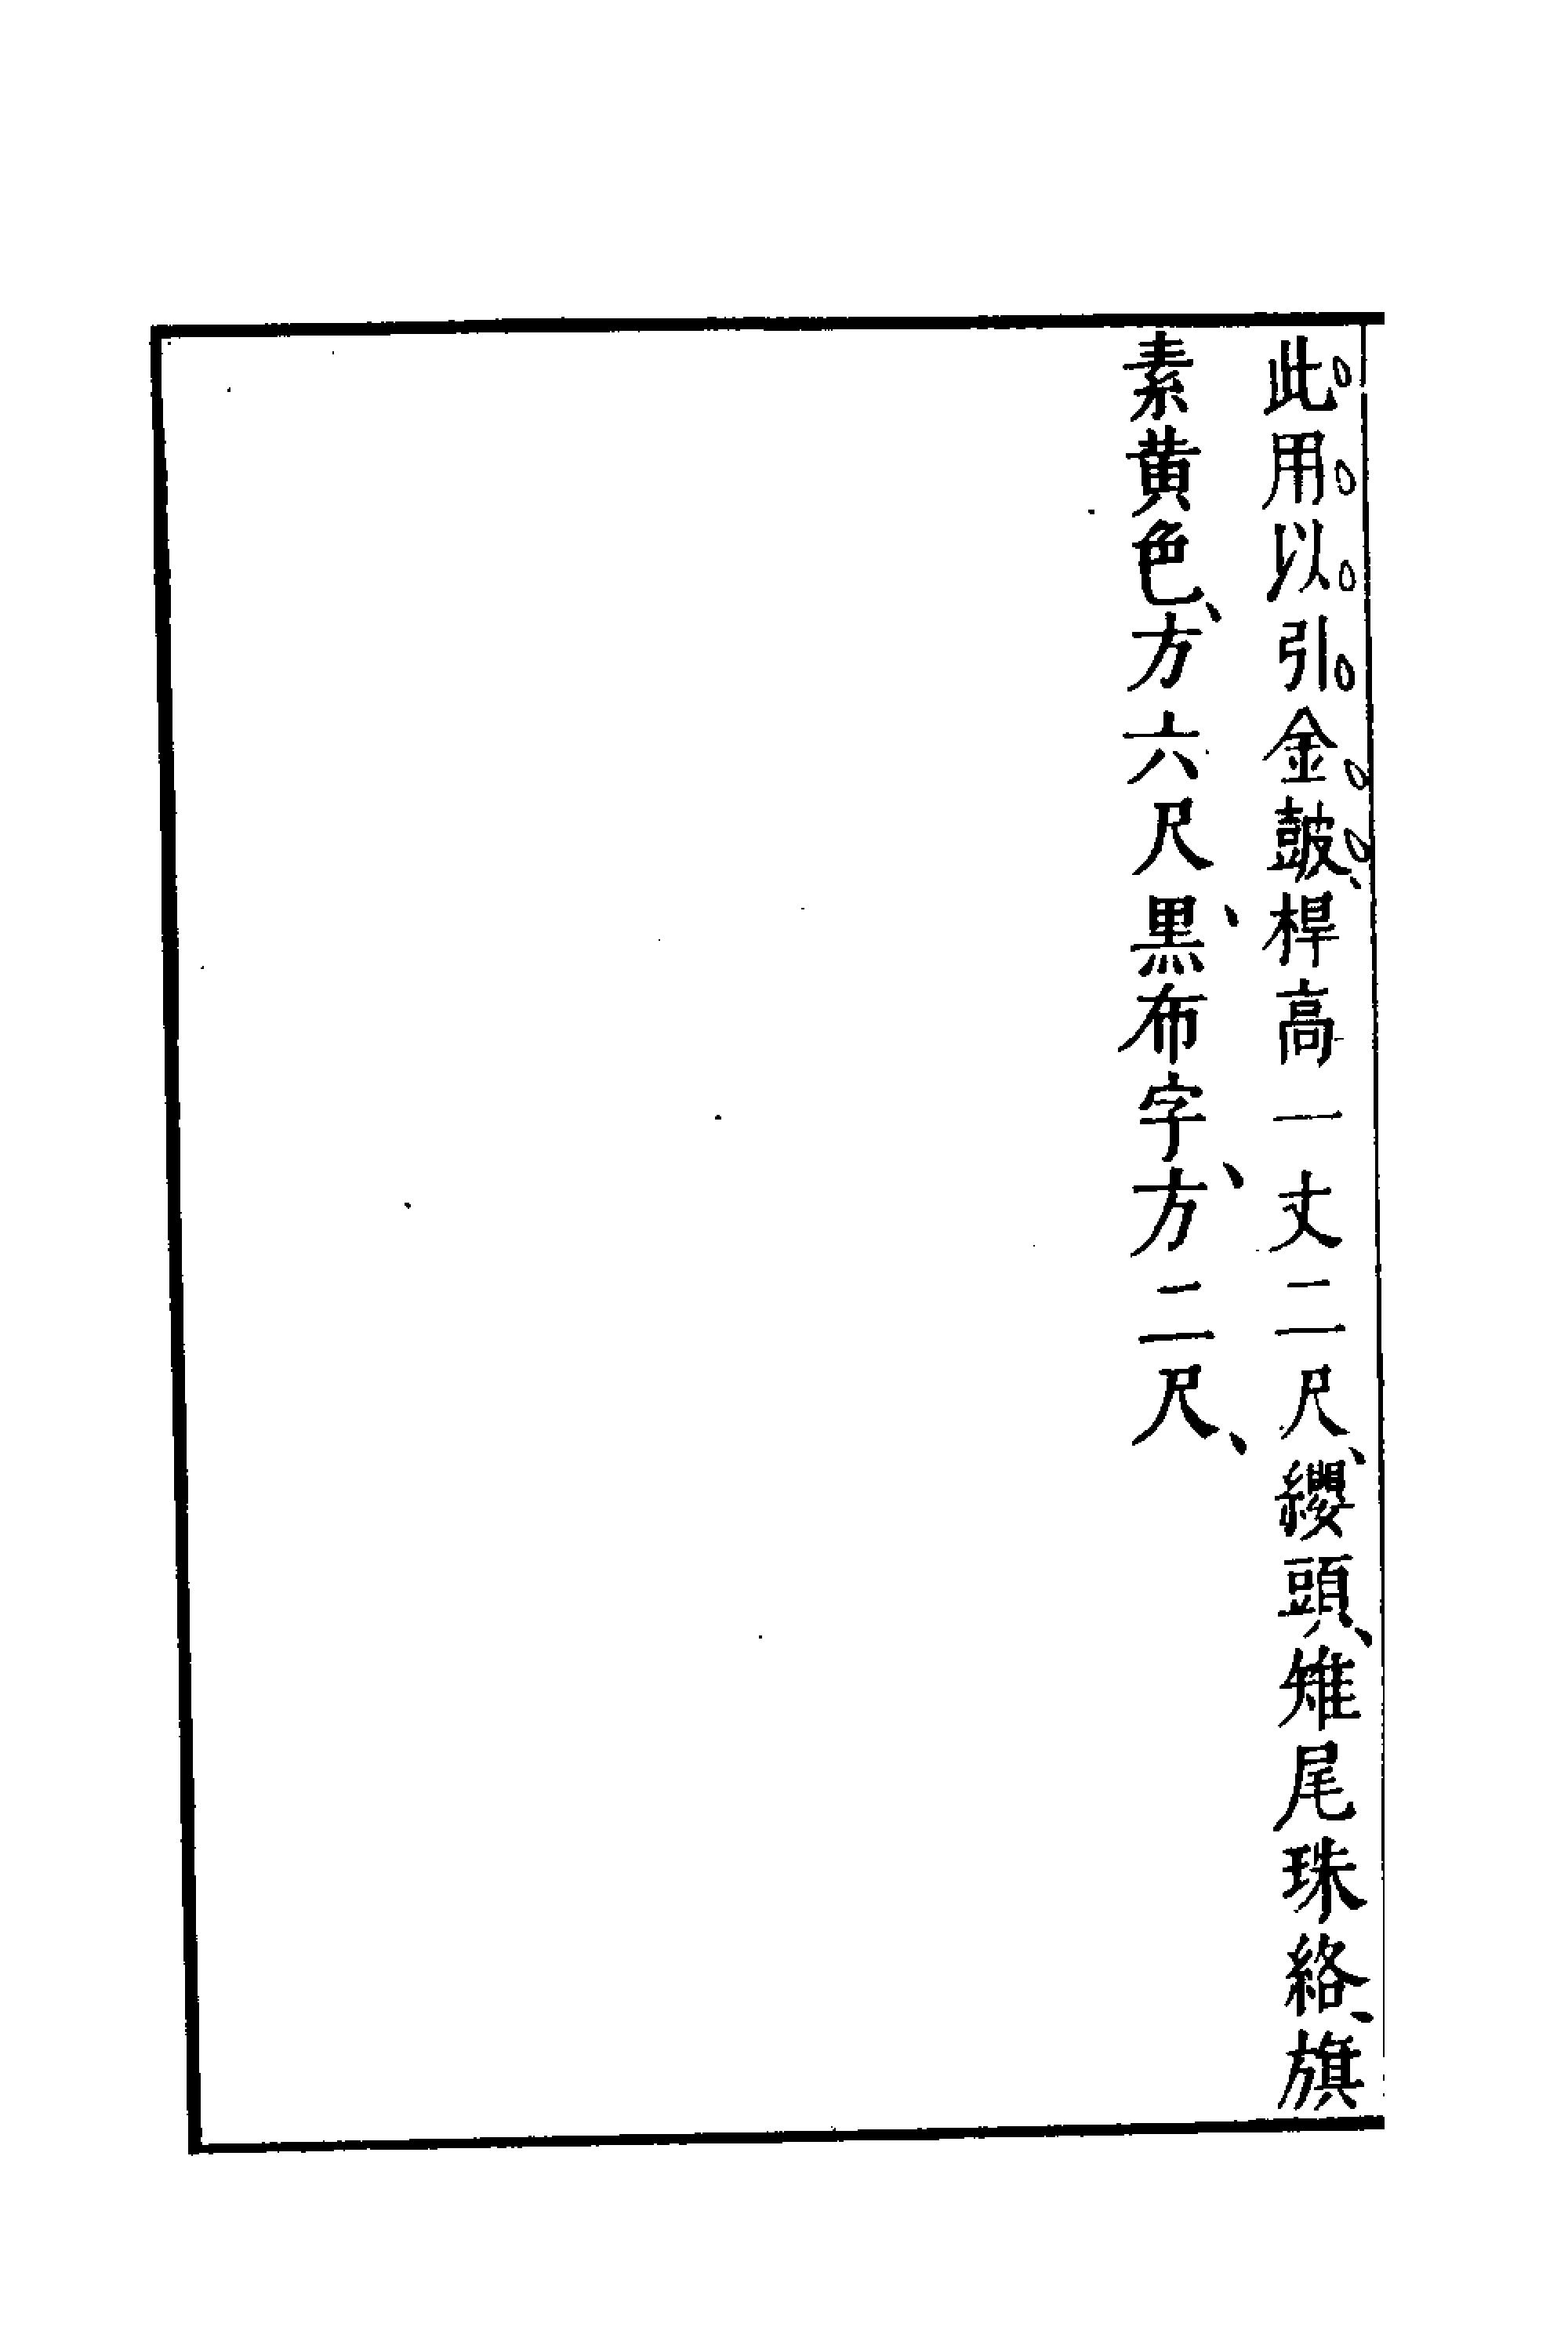 此用以引金鼓、桿高一丈二尺、纓頭、雉尾珠絡、旗
素黄色、方六尺、黒布字、方二尺、